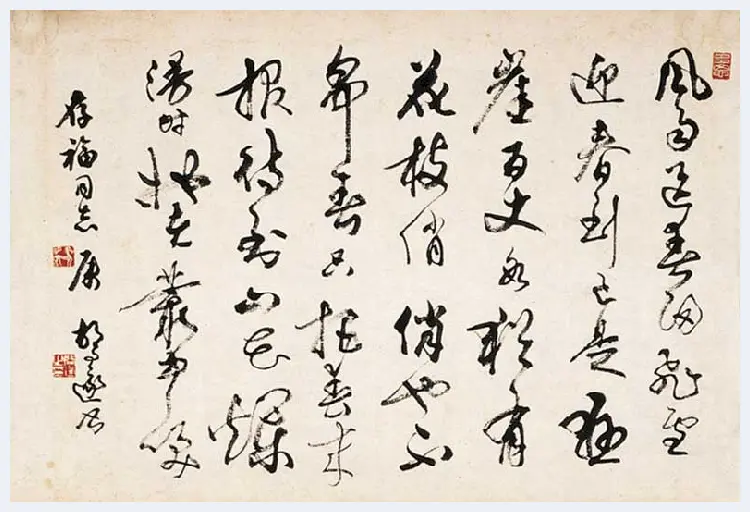 風雨送春归飛雪
迎春到已是懸
崖百丈冰猶有
花枝俏俏也不
爭春只把春来
報待到山花爛
漫时她在叢中咲
存福同志属